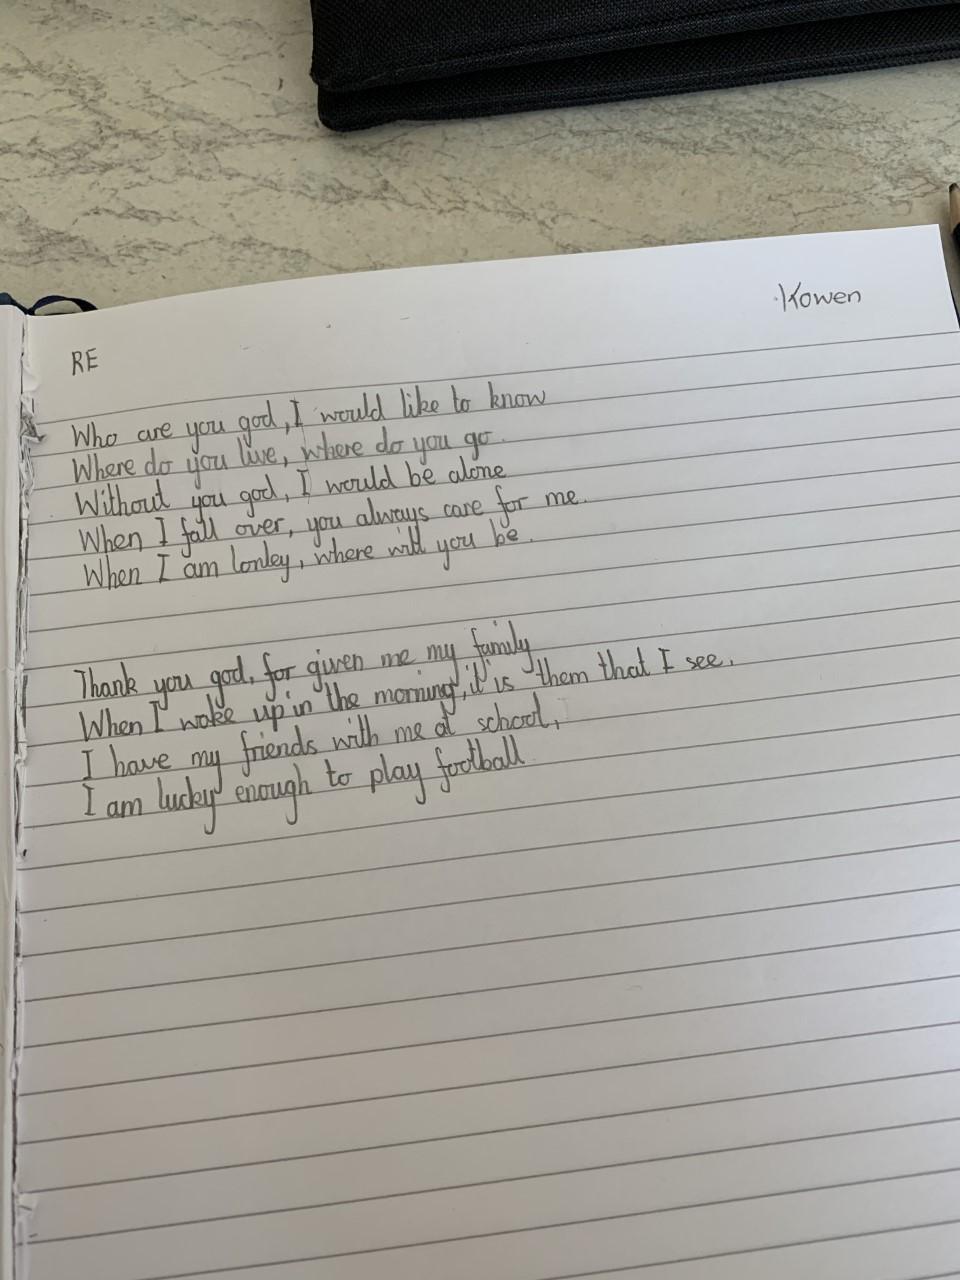 Kowen
RE
Who are you god, I would like to know
Where do you live, where do you go.
Without you god, I would be alone
When I fall over, you always care for me.
When I am lonley, where will you be.
Thank you god, for given me my family
When I wake up in the morning, it is them that I see.
I have my friends with me at school,
I am lucky enough to play football